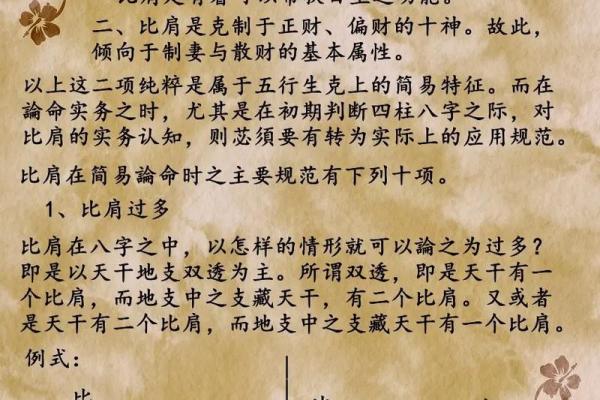 比肩是有着可以帮扶日主之功能。
二、比肩是克制于正财、偏财的十神。故此，
倾向于制妻与散财的基本属性。
以上这二项纯粹是属于五行生克上的简易特征。而在
論命实务之时，尤其是在初期判断四柱八字之际，对
比肩的实务认知，则苾須要有转为实际上的应用规范。
比肩在简易論命时之主要规范有下列十项。
1、比肩过多
比肩在八字之中，以怎样的情形就可以論之为过多？
即是以天干地支双透为主。所谓双透，即是天干有一
个比肩，而地支中之支藏天干，有二个比肩。又或者
是天干有二个比肩，而地支中之支藏天干有一个比肩。
例式：
比